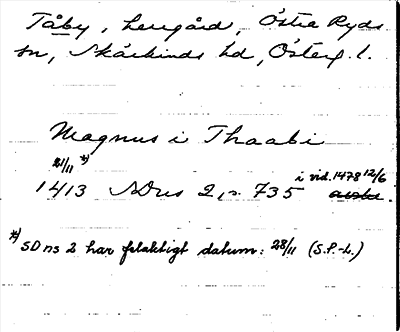 Tåby, herrgård, Östra Ryds
sn, Skärkinds hd, Österg. l.
Magnus i Thaabi
21/11 *)
i vid. 1478 12/6
1413 SDns 2, s. 735 avskr.
*) SDns 2 har felaktigt datum: 28/11 (S.P.-L.)